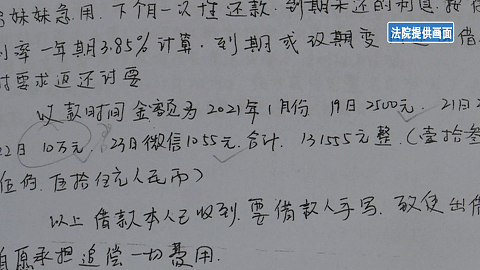 法院提供画面
妹妹急用.下个月一次性还款.到期未还的利息按
利率一年期3.85%计算.到期或设期变
时要求返还讨要
以款时间金额为2021年1月份 19日2500元.21日2
22日 10万元.23日微信1055元.合计.131555元整.(壹拾叁
伍佰.伍拾伍元人民币)
以上借款本人已收到.要借款人手写.致使出借
自愿承担追偿一切费用.